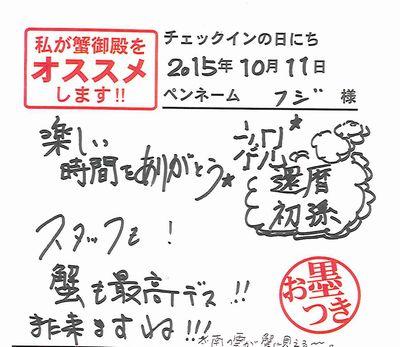 私が蟹御殿を
オススメ
します!!
チェックインの日にち
2015年10月11日
ペンネーム フジ 様
楽しい
時間をありがとう
還暦
初孫
スタッフも!
蟹も最高デス!!
また来ますね!!!
お墨
つき